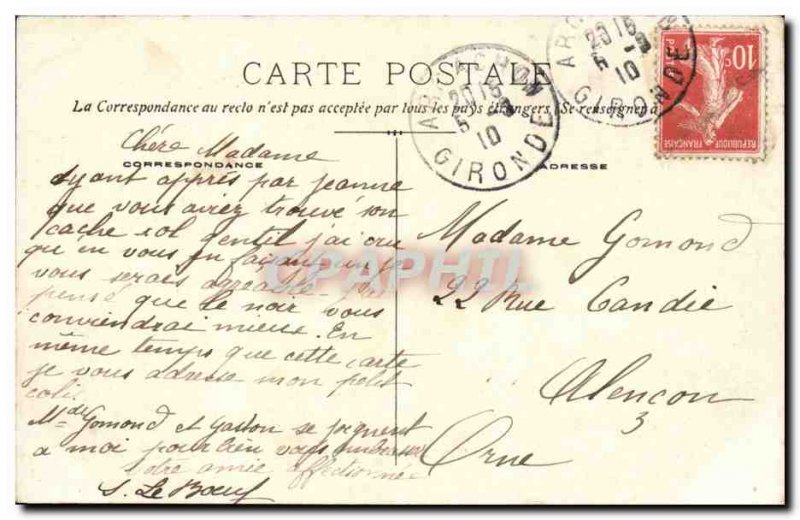 CARTE POSTALE
La Correspondance au recto n'est pas acceptée par tous les pays étrangers (Se renseigner à
CORRESPONDANCE
ADRESSE
Chére Madame
Ayant appris par Jeanne
que vous aviez trouvé son
cache col gentil j'ai cru
qu'en vous en faisant un je
vous serais agréable
pensé que le noir vous
conviendrai mieux. En
même temps que cette carte
je vous adresse mon petit
colis
Mde Gomond et Gaston se joignent
a moi pour bien vous embrasser
votre amie affectionnée
S. Le Bœuf
Madame Gomond
22 Rue Candie
Alençon
3
Orne
ARCACHON
20 15
10
GIRONDE
20 15
10
GIRONDE
10c
POSTES
REPUBLIQUE FRANÇAISE
CPAPHIL